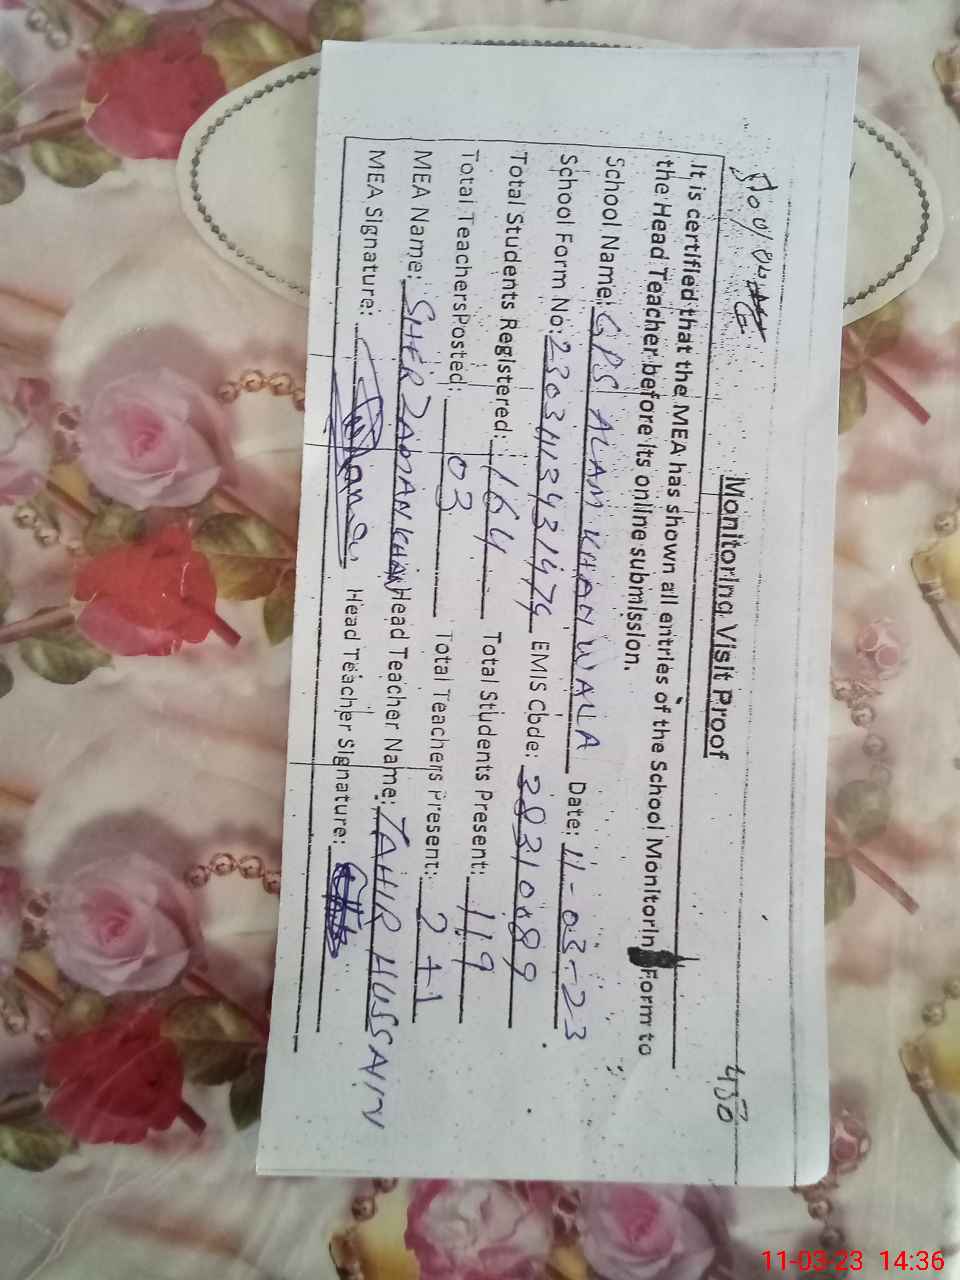 Monitoring Visit Proof
430
It is certified that the MEA has shown all entries of the School Monitorin Form to
the Head Teacher before its online submission.
School Name: GPS ALAM KHAN WALA Date: 11-03-23
School Form No: EMIS Code: 38310089
Total Students Registered: 164 Total Students Present: 119
Total Teachers Posted: 03 Total Teachers Present: 2+1
MEA Name: SHER ZAMAN KHAN Head Teacher Name: TAHIR HUSSAIN
MEA Signature: Head Teacher Signature:
11-03-23 14:36